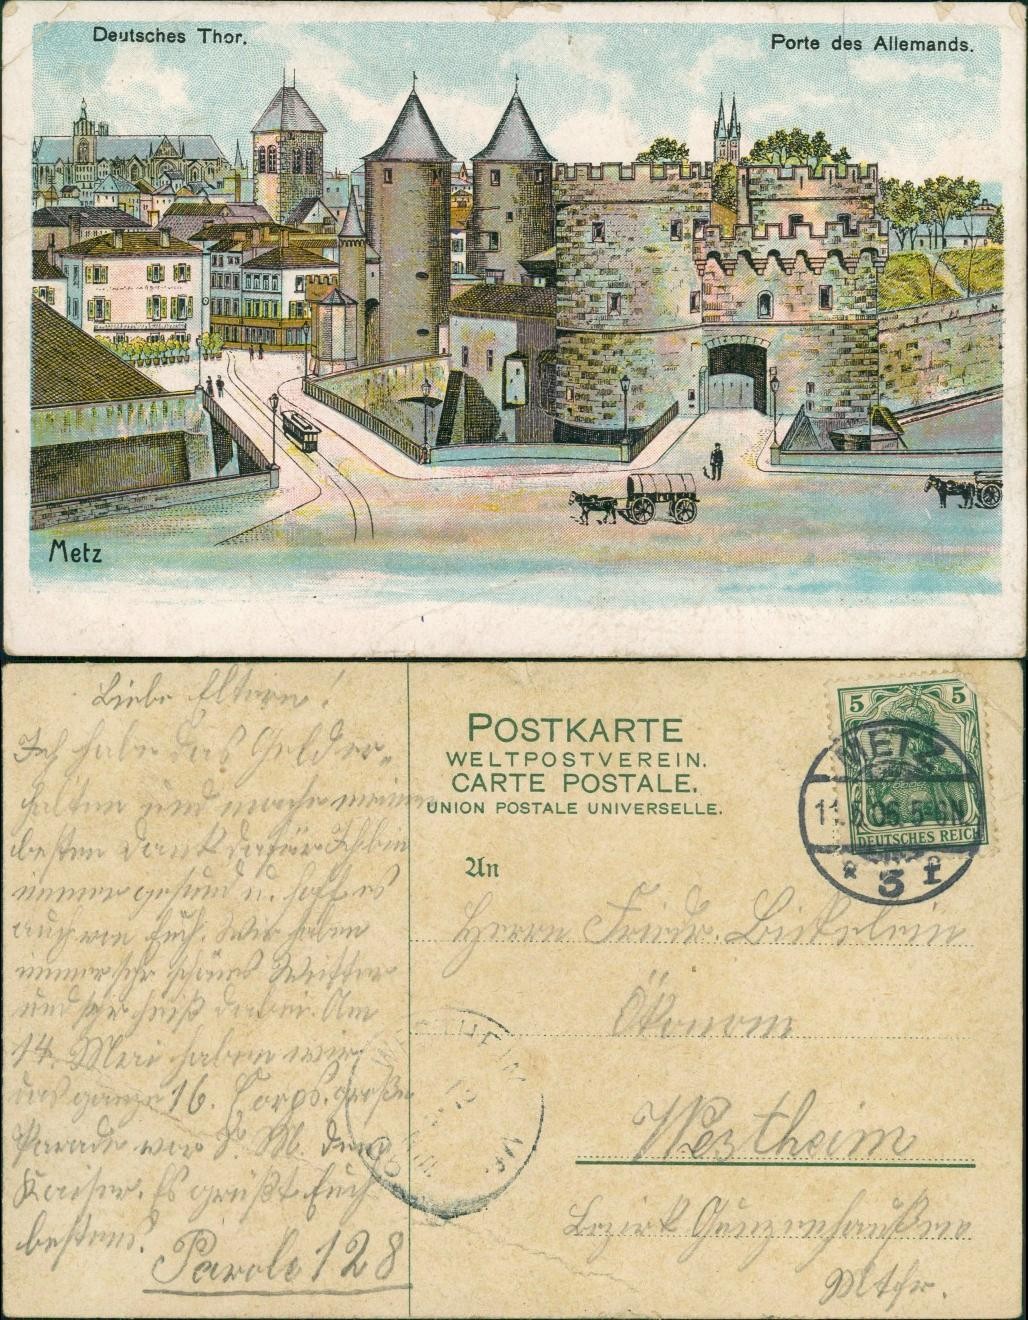 Deutsches Thor.
Porte des Allemands.
Metz
Liebe Eltern!
Ich habe das Geld er-
halten und mache meinen
besten Dank dafür Ich bin
immer gesund u. hoff es
auch von Euch. Wir haben
immer sehr schönes Wetter
und sehr heiß dabei. Am
14. Mai haben wir
das ganze 16. Corps. große
Parade vor S. M. dem
Kaiser. Es grüßt Euch
bestens.
Parole 128
POSTKARTE
WELTPOSTVEREIN.
CARTE POSTALE.
UNION POSTALE UNIVERSELLE.
5 5
DEUTSCHES REICH
METZ
11.5.06. 5-6N.
* 3 f
An
Herrn Friedr. Bickelein
Ökonom
Westheim
Bezirk Gunzenhaußen
Mtfr.